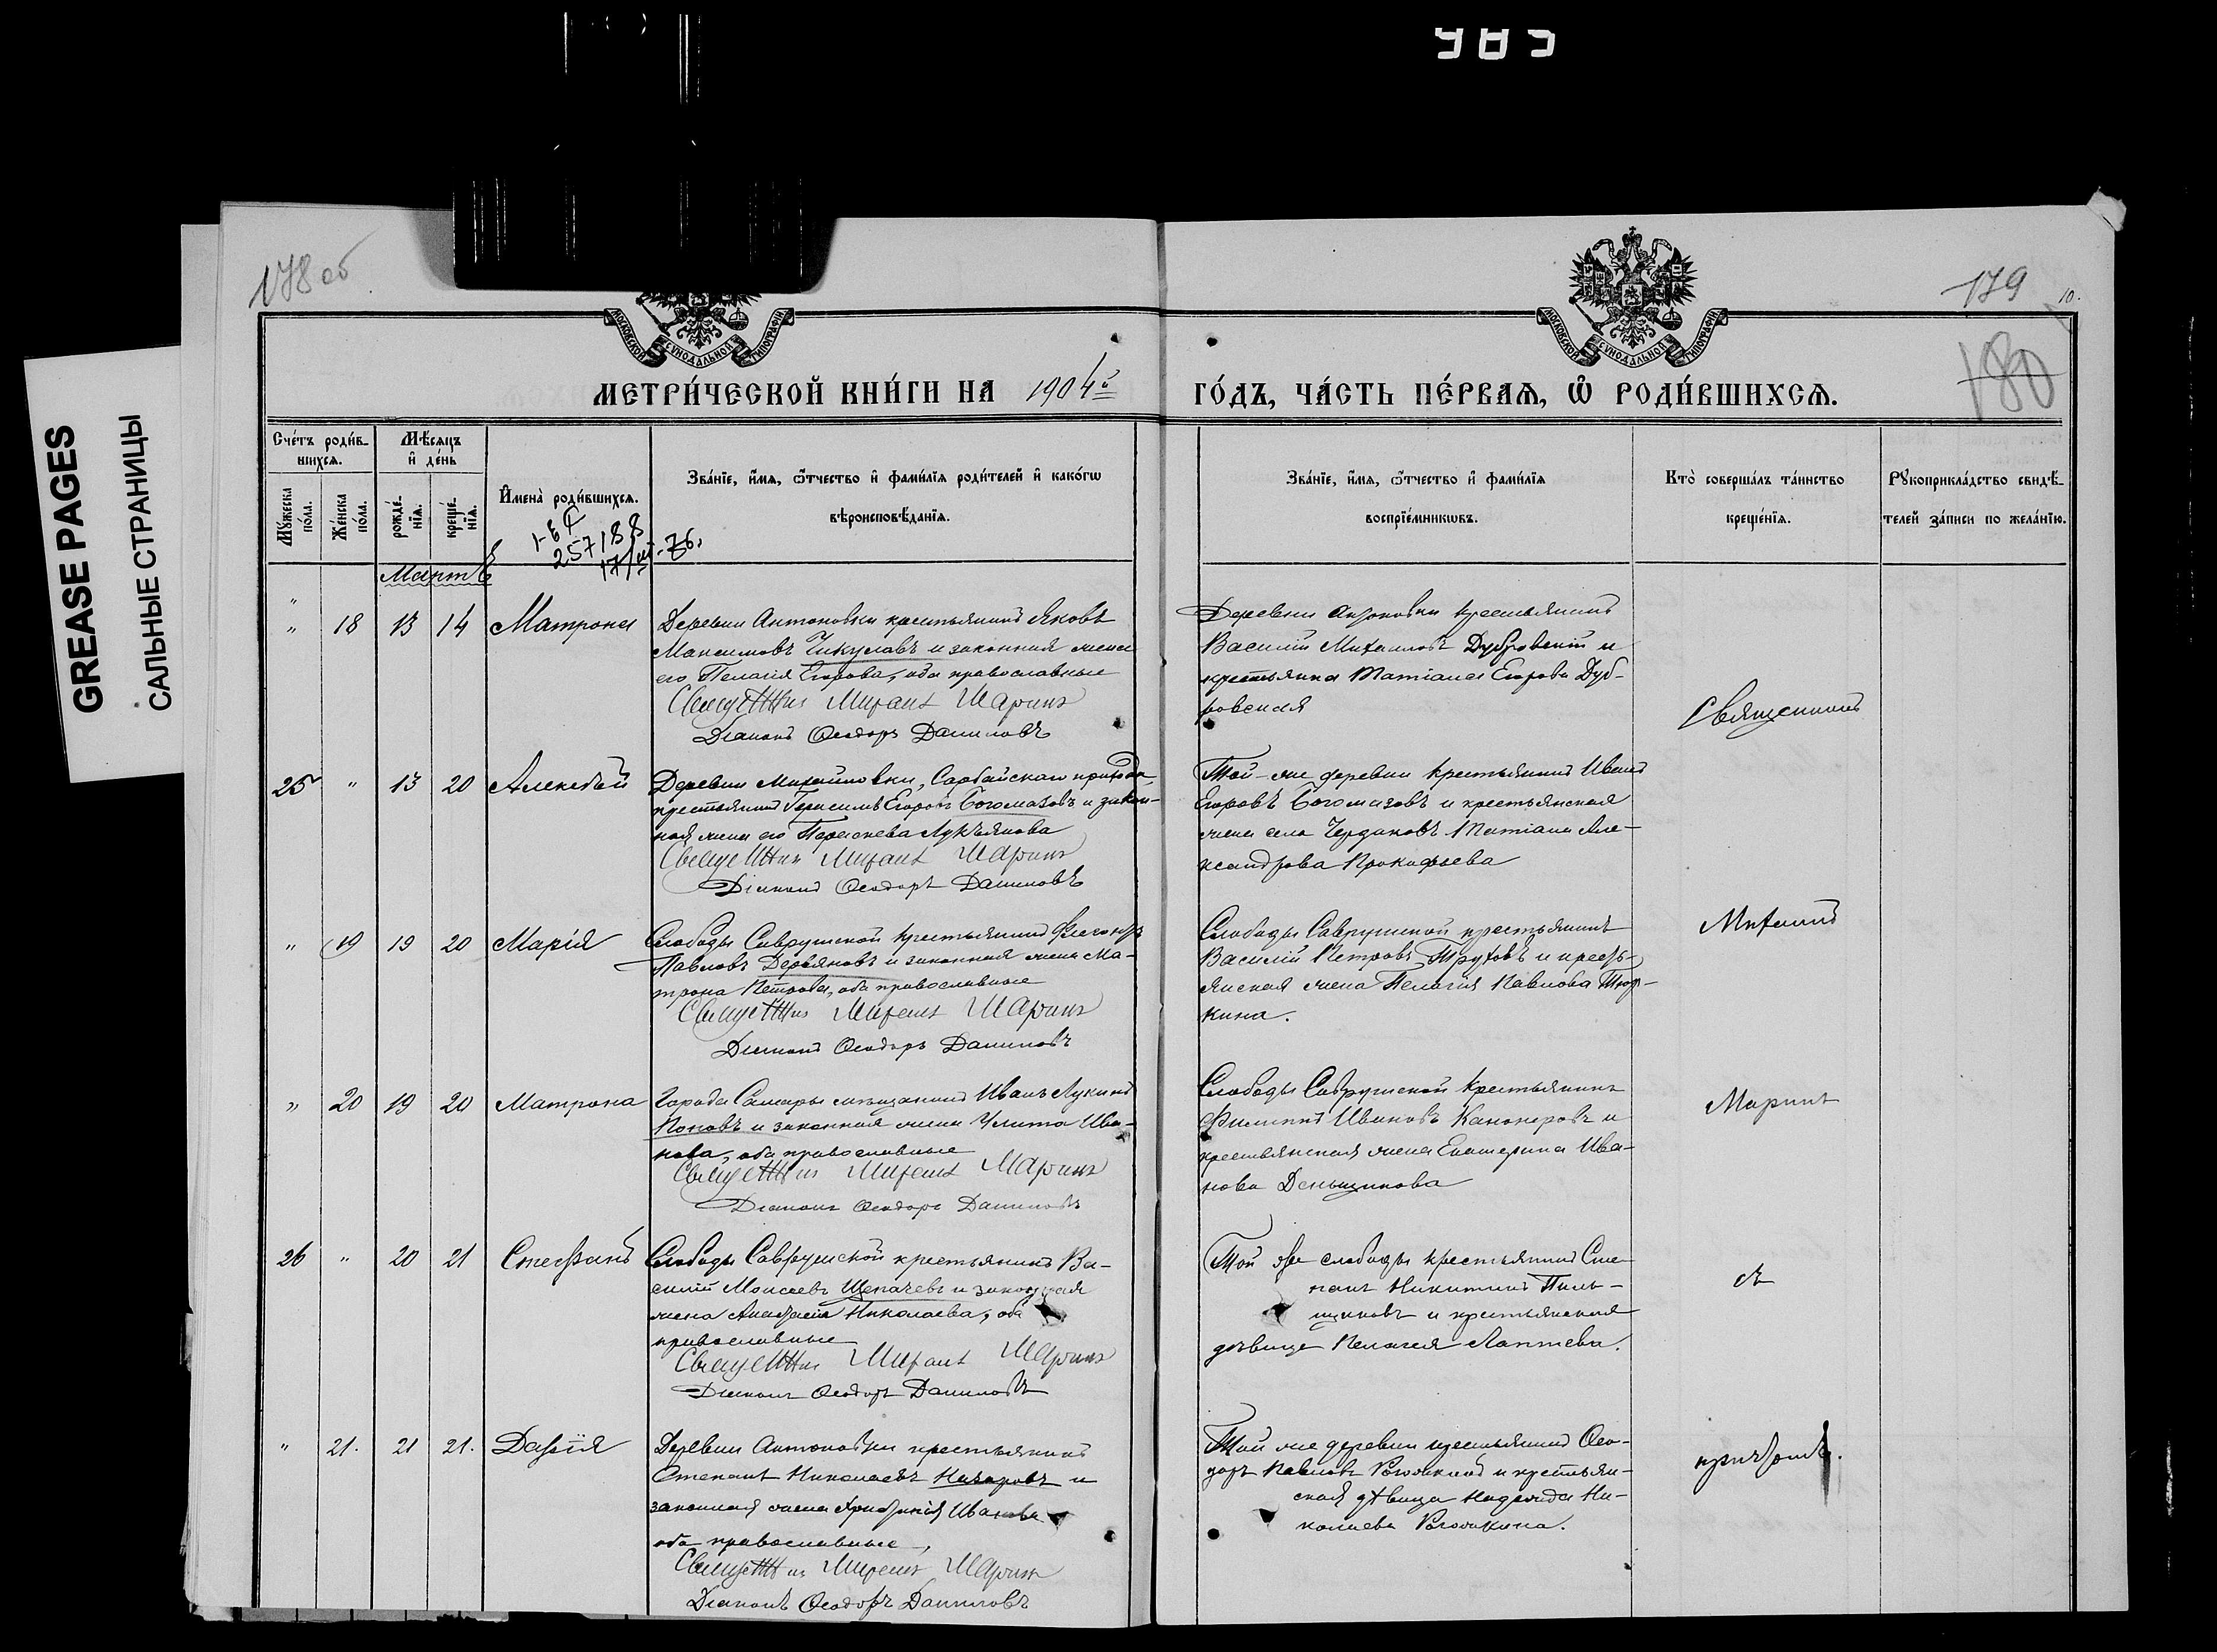 GREASE PAGES
САЛЬНЫЕ СТРАНИЦЫ
178 об
179
10.
180
МОСКОВСКОЙ СѴНОДАЛЬНОЙ ТИПОГРАФІИ
МОСКОВСКОЙ СѴНОДАЛЬНОЙ ТИПОГРАФІИ
МЕТРИ́ЧЕСКОЙ КНИ́ГИ НА 1904й
ГО́ДЪ, ЧА́СТЬ ПЕ́РВАѦ, Ѡ҆ РОДИ́ВШИХСѦ.
Сче́тъ роди́в-
шихсѧ.
Мѣ́сѧцъ
и҆ де́нь
Мꙋ́жеска по́ла.
Же́нска по́ла.
рожде́-
нїѧ.
креще́-
нїѧ.
И҆мена̀ роди́вшихсѧ.
257188
17/III-76.
Зва́нїе, и҆́мѧ, ѻ҆́тчество и҆ фами́лїѧ роди́телей и҆ како́гѡ
вѣроисповѣ́данїѧ.
Зва́нїе, и҆́мѧ, ѻ҆́тчество и҆ фами́лїѧ
воспрїе́мникѡвъ.
Кто̀ соверша́лъ та́инство
креще́нїѧ.
Рꙋкоприкла́дство свидѣ́-
телей за́писи по жела́нїю.
Мартъ
" 18 13 14 Матрона
Деревни Антоновки крестьянинъ Яковъ
Максимовъ Чикулавъ и законная жена
его Пелагія Егорова, оба православные
Священникъ Михаилъ Маринъ
Діаконъ Ѳеодоръ Даниловъ
Деревни Антоновки крестьянинъ
Василій Михаиловъ Дубровскій и
крестьянка Татіана Егорова Дуб-
ровская
Священникъ
25 " 13 20 Алексѣй
Деревни Михайловки, Сарбайскаго прихода,
крестьянинъ Герасимъ Егоровъ Богомазовъ и закон-
ная жена его Параскева Лукьянова
Священникъ Михаилъ Маринъ
Діаконъ Ѳеодоръ Даниловъ
Той-же деревни крестьянинъ Иванъ
Егоровъ Богомазовъ и крестьянская
жена села Чердаковъ Татіана Але-
ксандрова Прокофьева
" 19 19 20 Марія
Слободы Саврушской крестьянинъ Флегонтъ
Павловъ Деревяновъ и законная жена Ма-
трона Петрова, оба православные
Священникъ Михаилъ Маринъ
Діаконъ Ѳеодоръ Даниловъ
Слободы Саврушской крестьянинъ
Василій Петровъ Труховъ и кресть-
янская жена Пелагія Павлова
кина.
Михаилъ
" 20 19 20 Матрона
Города Самары мѣщанинъ Иванъ Лукинъ
Поповъ и законная жена Улита Ива-
нова, оба православные
Священникъ Михаилъ Маринъ
Діаконъ Ѳеодоръ Даниловъ
Слободы Саврушской крестьянинъ
Филиппъ Ивановъ Канонеровъ и
крестьянская жена Екатерина Ива-
нова Деньщикова
Маринъ
26 " 20 21 Стефанъ
Слободы Саврушской крестьянинъ Ва-
силій Моисеевъ Щепачевъ и законная
жена Анастасія Николаева, оба
православные
Священникъ Михаилъ Маринъ
Діаконъ Ѳеодоръ Даниловъ
Той же слободы крестьянинъ Сте-
панъ Никитинъ Пиль-
щиковъ и крестьянская
дѣвица Пелагея Лаптева.
съ
" 21. 21 21. Дарія
Деревни Антоновки крестьянинъ
Степанъ Николаевъ Назаровъ и
законная жена Иванова
оба православные,
Священникъ Михаилъ Маринъ
Діаконъ Ѳеодоръ Даниловъ
Той же деревни крестьянинъ Ѳео-
доръ Павловъ Рогожкинъ и крестьян-
ская дѣвица Надежда Ни-
колаева Рогожкина.
причтомъ.